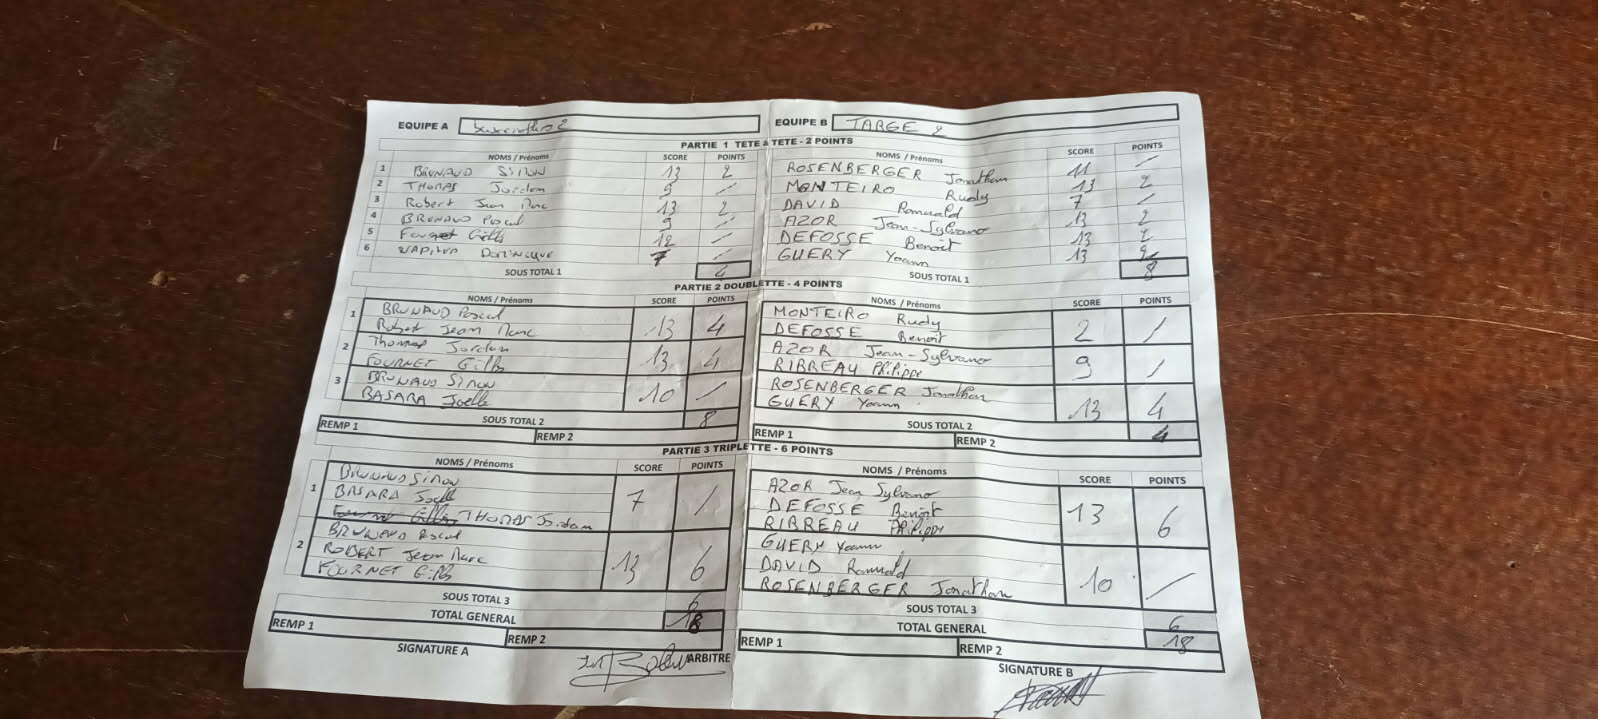 EQUIPE A EQUIPE B TARGE 2
PARTIE 1 TETE à TETE - 2 POINTS
NOMS / Prénoms SCORE POINTS NOMS / Prénoms SCORE POINTS
1 BRUNAUD SIMON 13 2 ROSENBERGER Jonathan 11 /
2 THOMAS Jordan 9 / MONTEIRO Rudy 13 2
3 Robert Jean Marc 13 2 DAVID Romuald 7 /
4 BRUNAUD Pascal 9 / AZOR Jean-Sylvano 13 2
5 Gilles 12 / DEFOSSE Benoît 13 2
6 DOMINIQUE 7 / GUERY Yoann 13 2
SOUS TOTAL 1 4 SOUS TOTAL 1 8
PARTIE 2 DOUBLETTE - 4 POINTS
NOMS / Prénoms SCORE POINTS NOMS / Prénoms SCORE POINTS
1 BRUNAUD Pascal MONTEIRO Rudy
Robert Jean Marc 13 4 DEFOSSE Benoît 2 /
2 Thomas Jordan AZOR Jean-Sylvano
FOURNET Gilles 13 4 RIBREAU Philippe 9 /
3 BRUNAUD Simon ROSENBERGER Jonathan
BASARA Joelle 10 / GUERY Yoann 13 4
SOUS TOTAL 2 8 SOUS TOTAL 2 4
REMP 1 REMP 2 REMP 1 REMP 2
PARTIE 3 TRIPLETTE - 6 POINTS
NOMS / Prénoms SCORE POINTS NOMS / Prénoms SCORE POINTS
1 BRUNAUD Simon AZOR Jean Sylvano
BASARA Joelle 7 / DEFOSSE Benoît 13 6
THOMAS Jordan RIBREAU Philippe
2 BRUNAUD Pascal GUERY Yoann
ROBERT Jean Marc 13 6 DAVID Romuald 10 /
FOURNET Gilles ROSENBERGER Jonathan
SOUS TOTAL 3 6 SOUS TOTAL 3 6
TOTAL GENERAL 18 TOTAL GENERAL 18
REMP 1 REMP 2 REMP 1 REMP 2
SIGNATURE A ARBITRE SIGNATURE B